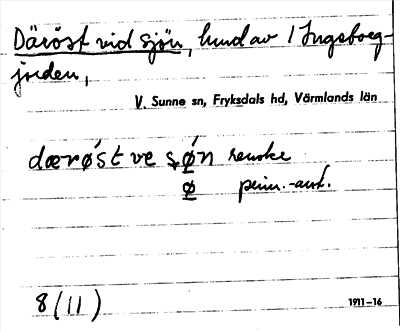 Däröst vid sjön, hund av 1 Ingeborg-
jorden,
V. Sunne sn, Fryksdals hd, Värmlands län
dærǿst ve sǿn
ø
8(11)
1911–16